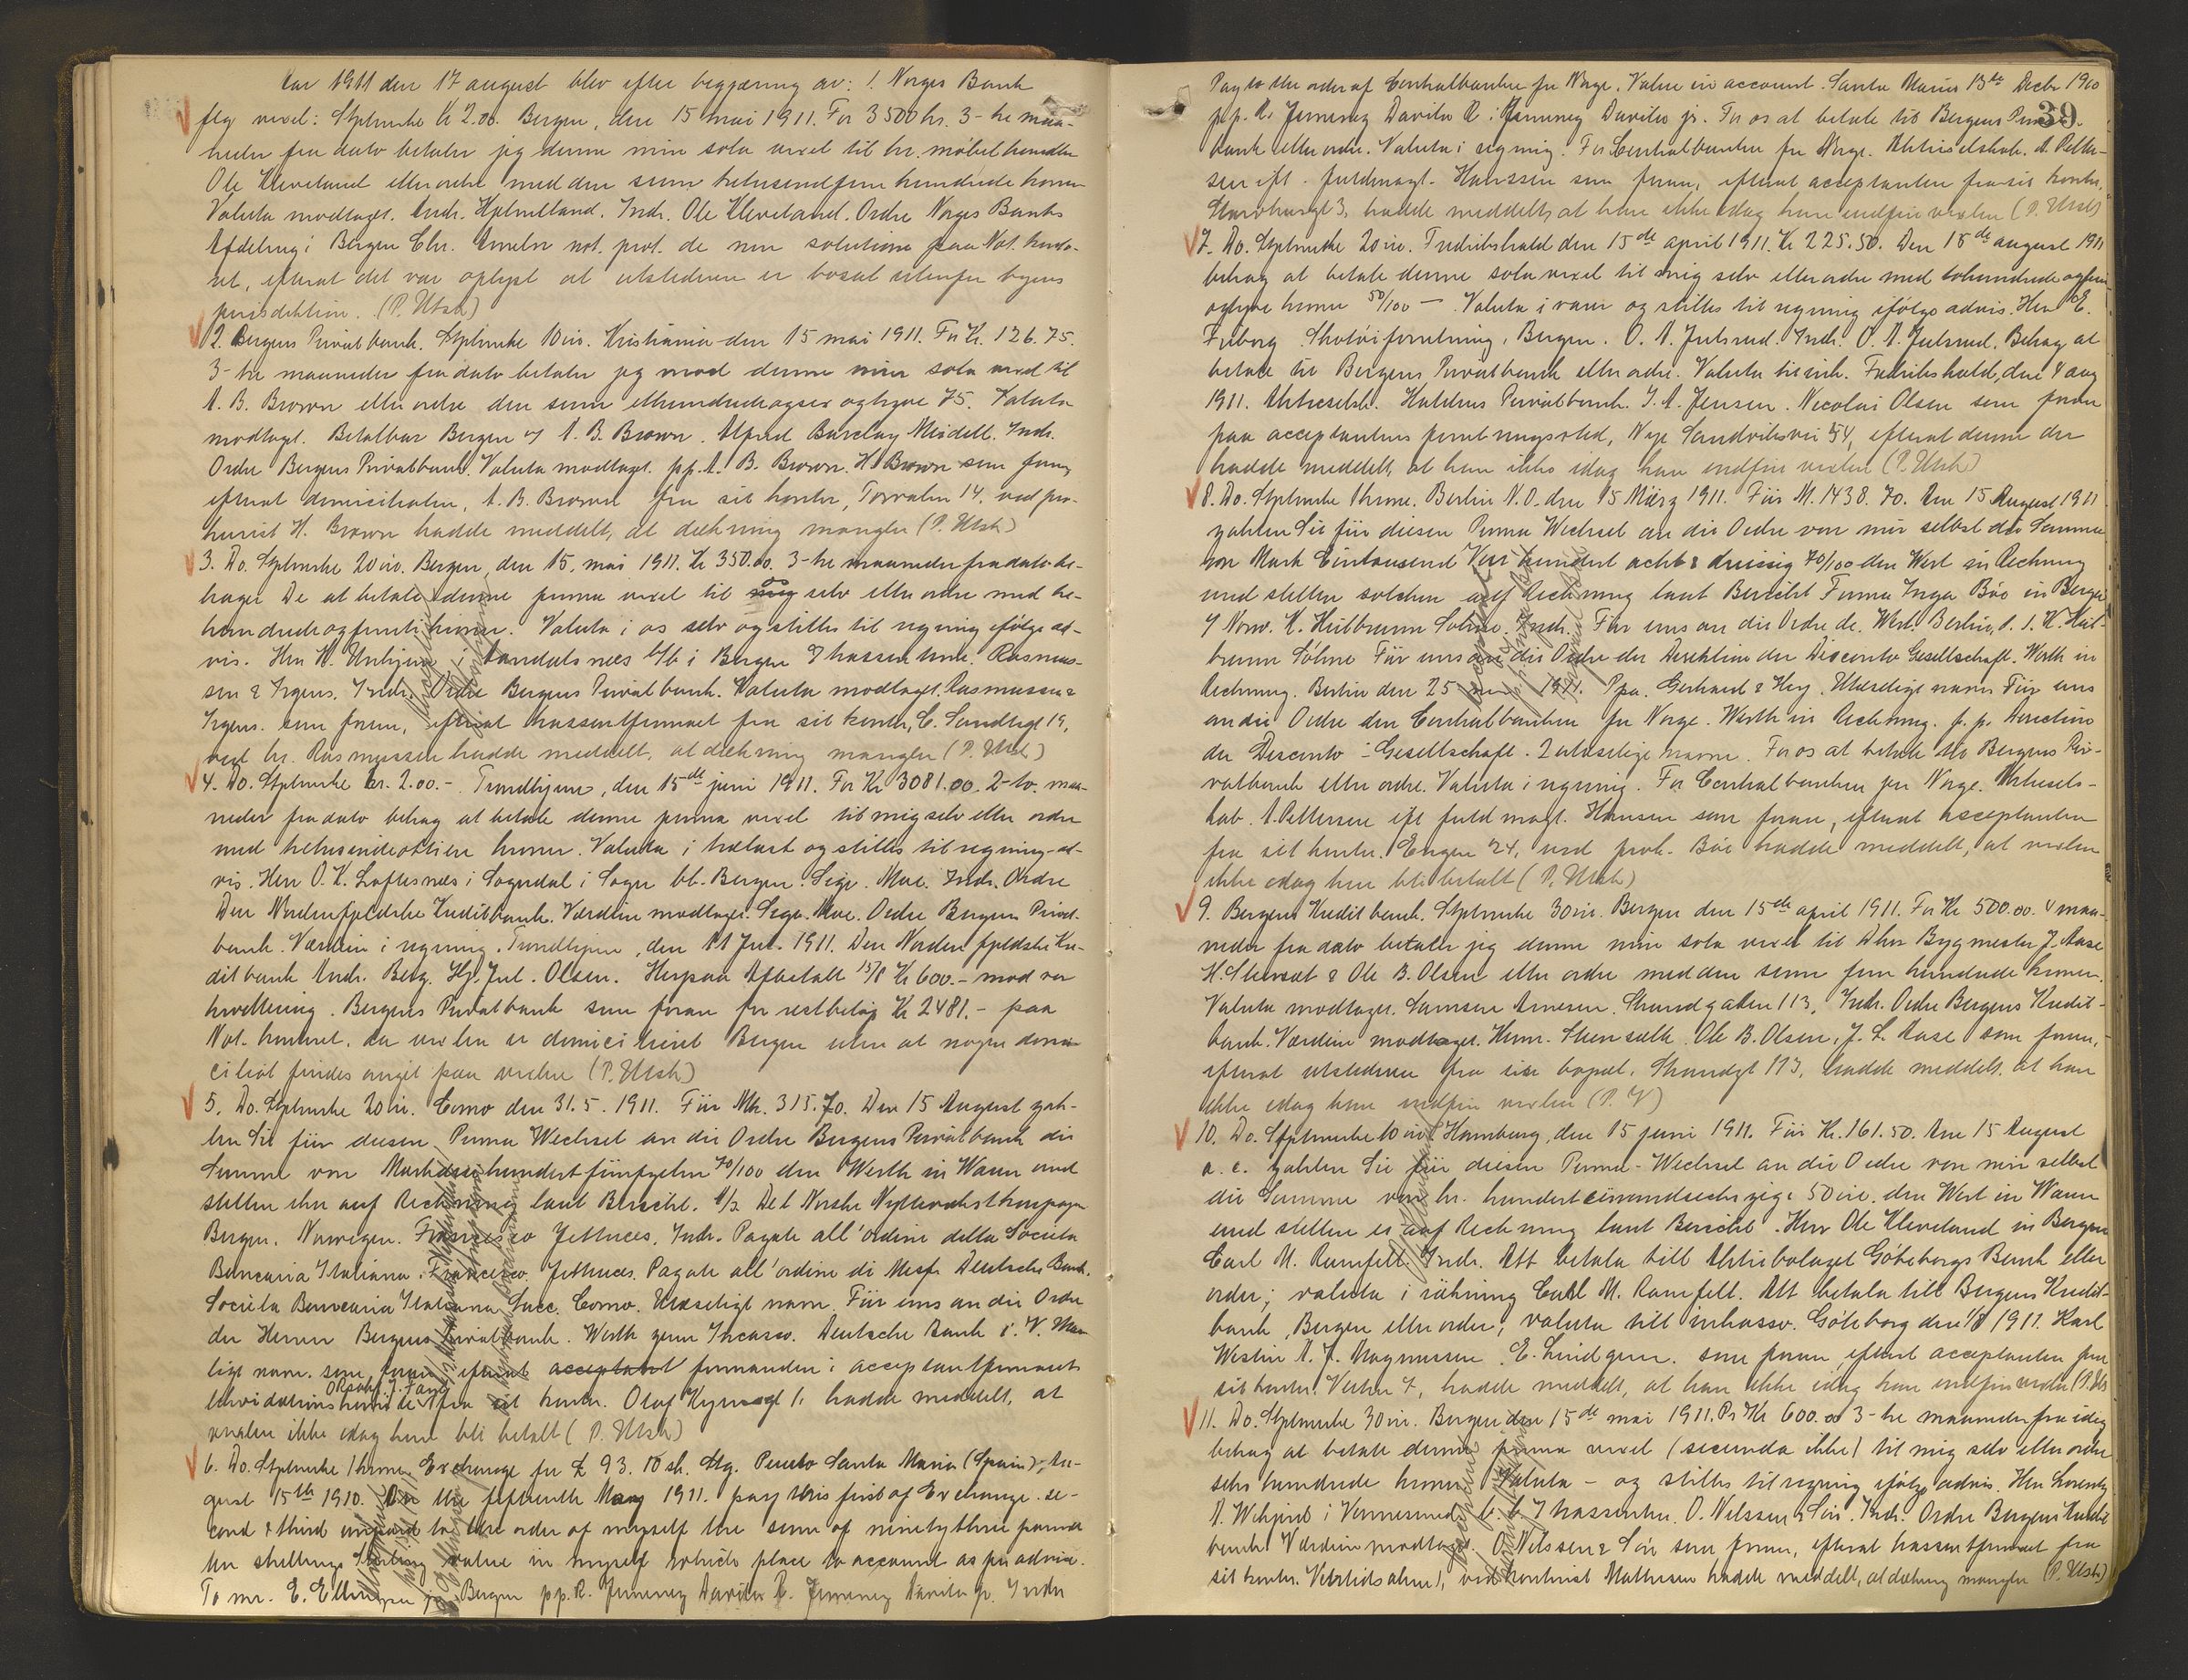 Aar 1911 den 17 august blev efter begjæring av: 1. Norges Bank
flg vexel: Stplmrke Kr 2.00. Bergen, den 15 mai 1911. For 3500 kr. 3-tre maa-
neder fra dato betaler jeg denne min sola vexel til hr. møbelhandler
Ole Kleveland eller ordre med den sum tretusendfem hundrede kroner
Valuta modtaget. Andr. Hjelmeland. Indr. Ole Kleveland. Ordre Norges Banks
Afdeling i Bergen Chr. Ameln not. prot. de non solutione paa Not. konto-
ret, efterat det var oplyst at utstederen er bosat utenfor byens
jurisdiktion. (P. Utsk)
2. Bergens Privatbank. Stplmrke 10 ör. Kristiania den 15 mai 1911. For Kr. 126.75.
3-tre maaneder fra dato betaler jeg mod denne min sola vexel til
A. B. Brown eller ordre den sum ethundredeogsex ogtyve 75. Valuta
modtaget. Betalbar Bergen A. B. Brown. Alfred Barclay Meidell. Indr.
Ordre Bergens Privatbank. Valuta modtaget. pp. A. B. Brown. H. Brown som foran,
efterat domiciliaten, A. B. Brown fra sit kontor, Torvalm 14. ved pro-
kurist H. Brown hadde meddelt, at dækning mangler (P. Utsk)
3. Do. Stplmrke 20 öre. Bergen, den 15. mai 1911. Kr 350.00. 3-tre maaneder fra dato be-
hager De at betale denne prima vexel til os selv eller ordre med tre-
hundredeogfemti kroner. Valuta i os selv og stilles til regning ifølge ad-
vis. Herr i Bergen Rasmus-
sen & Irgens. Indr. Ordre Bergens Privatbank. Valuta modtaget. Rasmussen &
Irgens. som foran, efterat kassentfirmaet fra sit kontor, C. Sundtsgt 19,
ved hr. Rasmussen hadde meddelt, at dækning mangler (P. Utsk)
4. Do. Stplmrke kr. 2.00.- Trondhjem, den 15de juni 1911. For Kr 3081.00. 2-to maa-
neder fra dato behag at betale denne prima vexel til mig selv eller ordre
med tretusindeottien kroner. Valuta i trælast og stilles til regning ad-
vis. Herr O. K. Loftesnes i Sogndal i Sogn bb. Bergen. Sigv. Moe. Indr. Ordre
Den Nordenfjeldske Kreditbank. Værdien modtaget. Sigv. Moe. Ordre Bergens Privat-
bank. Værdien i regning. Trondhjem, den 11 Jul. 1911. Den Nordenfjeldske Kre-
ditbank Andr. Berg. Hj. Jul. Olsen. Herpaa Afbetalt 15/8 Kr 600.- mod ved
kvittering. Bergens Privatbank som foran for restbeløp Kr 2481.- paa
Not. kontoret. da vexlen er domicileret Bergen uten at nogen domi-
ciliat findes angit paa vexlen (P. Utsk)
5. Do. Stplmrke 20 ör. Como den 31.5.1911. Für Mk. 315.70. Den 15 August zah-
len Sie für diesen Prima Wechsel an die Ordre Bergens Privatbank die
Summe von Mark dreihundertfünfzehn 70/100 den Werth in Waren und
stellen ihn auf Rechnung laut Bericht. A/S Det Norske
Bergen. Norwegen. Francesco Indr. Pagate all'ordine della Societa
Bancaria Italiana. Francesco Pagate all'ordine di Deutsche Bank.
Societa Bancaria Italiana Succ. Como. Ulæseligt navn. Für uns an die Ordre
der Herren Bergens Privatbank. Werth zum Incasso. Deutsche Bank
ligt navn. som foran efterat acceptant formanden i acceptantfirmaets
likvidationskomite fra sit kontor. Olaf Kyrresgt 1. hadde meddelt, at
vexlen ikke idag kan bli betalt (P. Utsk)
6. Do. Stplmrke 1 krone. Exchange for £ 93. 10 sh. Stg. Puerto Santa Maria (Spain), Au-
gust 15th 1910. On the fifteenth May 1911. pay this first of Exchange. se-
cond & third unpaid to the order of myself the sum of ninetythree pounds
ten shillings Sterling value in myself which place to account as per advice.
To mr. E. Bergen pp. R. Jimenez Davila R. Jimenez Davila jr. Indr
39
Pay to the order of Centralbanken for Norge. Value in account. Santa Maria 13de Decbr 1910
p.p. R. Jimenez Davila R. Jimenez Davila jr. For os at betale til Bergens Privat-
bank eller ordre. Valuta i regning. For Centralbanken for Norge. Aktieselskab. A. Petter-
sen ifl. fuldmagt. Hanssen som foran, efterat acceptanten fra sit kontor,
3, hadde meddelt, at han ikke idag kan indfri vexlen (P. Utsk)
7. Do. Stplmrke 20 ör. Fredrikshald den 15de april 1911. Kr 225.50. Den 15de august 1911
behag at betale denne sola vexel til mig selv eller ordre med tohundrede ogfem-
ogtyve kroner 50/100 — Valuta i varer og stilles til regning ifølge advis. Herr E.
Friborg Skotöiforretning, Bergen. O. A. Julsrud. Indr. O. A. Julsrud. Behag at
betale til Bergens Privatbank eller ordre. Valuta til ink. Fredrikshald, den 4 aug
1911. Aktieselsk. Haldens Privatbank. J. A. Jensen. Nicolai Olsen som foran
paa acceptantens forretningssted, Nye Sandviksvei 54, efterat denne der
hadde meddelt, at han ikke idag kan indfri vexlen (P. Utsk)
8. Do. Stplmrke 1 krone. Berlin N.O. den 15 März 1911. Für M. 1438.70. Am 15 August 1911
zahlen Sie für diesen Prima Wechsel an die Ordre von mir selbst die Summe
von Mark Eintausend Vier hundert acht & dreissig 70/100 den Wert in Rechnung
und stellen solchen auf Rechnung laut Bericht Firma Inga Böe in Bergen
Norw. K. Heilbrunn Söhne. Indr. Für uns an die Ordre Berlin, K. Heil-
brunn Söhne Für uns an die Ordre der Direktion der Disconto Gesellschaft. Werth in
Rechnung. Berlin den 25 1911. Ppa. Gerhard & Hey. Ulæselige navne Für uns
an die Ordre den Centralbanken for Norge. Werth in Rechnung. p. p. Direction
der Disconto-Gesellschaft. 2 ulæselige navne. For os at betale til Bergens Pri-
vatbank eller ordre. Valuta i regning. For Centralbanken for Norge. Aktiesels-
kab. A. Pettersen ifl fuldmagt. Hansen som foran, efterat acceptanten
fra sit kontor. Engen 24, ved prok. Böe hadde meddelt, at vexlen
ikke idag kan bli betalt (P. Utsk)
9. Bergens Kreditbank. Stplmrke 30 ör. Bergen den 15de april 1911. For Kr 500.00. 4 maa-
neder fra dato betaler jeg denne min sola vexel til Dhrr Bygmester J. Aase
H. Stensæt & Ole B. Olsen eller ordre med den sum fem hundrede kroner.
Valuta modtaget. Samson Arnesen. Strandgaten 113. Indr. Ordre Bergens Kredit-
bank. Værdien modtaget. Henr. Stensæth. Ole B. Olsen. J. L. Aase som foran,
efterat utstederen fra sin bopæl, Strandgt 113, hadde meddelt, at han
ikke idag kan indfri vexlen (P. U)
10. Do. Stplmrke 10 ör. Hamburg, den 15 juni 1911. Für Kr. 161.50. Am 15 August
a. c. zahlen Sie für diesen Prima-Wechsel an die Ordre von mir selbst
die Summe von kr. hunderteinundsechzig & 50 öre. den Wert in Waren
und stellen es auf Rechnung laut Bericht. Herr Ole Kleveland in Bergen
Carl M. Ramfelt. Indr. Att betala till Aktiebolaget Göteborgs Bank eller
order; valuta i räkning Carl M. Ramfelt. Att betala till Bergens Kredit-
bank, Bergen eller order; valuta till inkasso. Göteborg den 1/8 1911. Karl
Westin A. J. Magnusson. E. Lindgren. som foran, efterat acceptanten fra
sit kontor. 7, hadde meddelt, at han ikke idag kan indfri vexlen (P. Uts
11. Do. Stplmrke 30 ör. Bergen den 15de mai 1911. Pr Kr 600.00 3-tre maaneder fra idag
behag at betale denne prima vexel (secunda ikke) til mig selv eller ordre
seks hundrede kroner Valuta - og stilles til regning ifølge advis. Herr Lorentz
A. i O. Nilssen & Sön. Indr. Ordre Bergens Kredit-
bank Værdien modtaget. O. Nilssen & Sön som foran, efterat kassentfirmaet fra
sit kontor. ved kontorist Mathiesen hadde meddelt, at dækning mangler (P. Utsk)